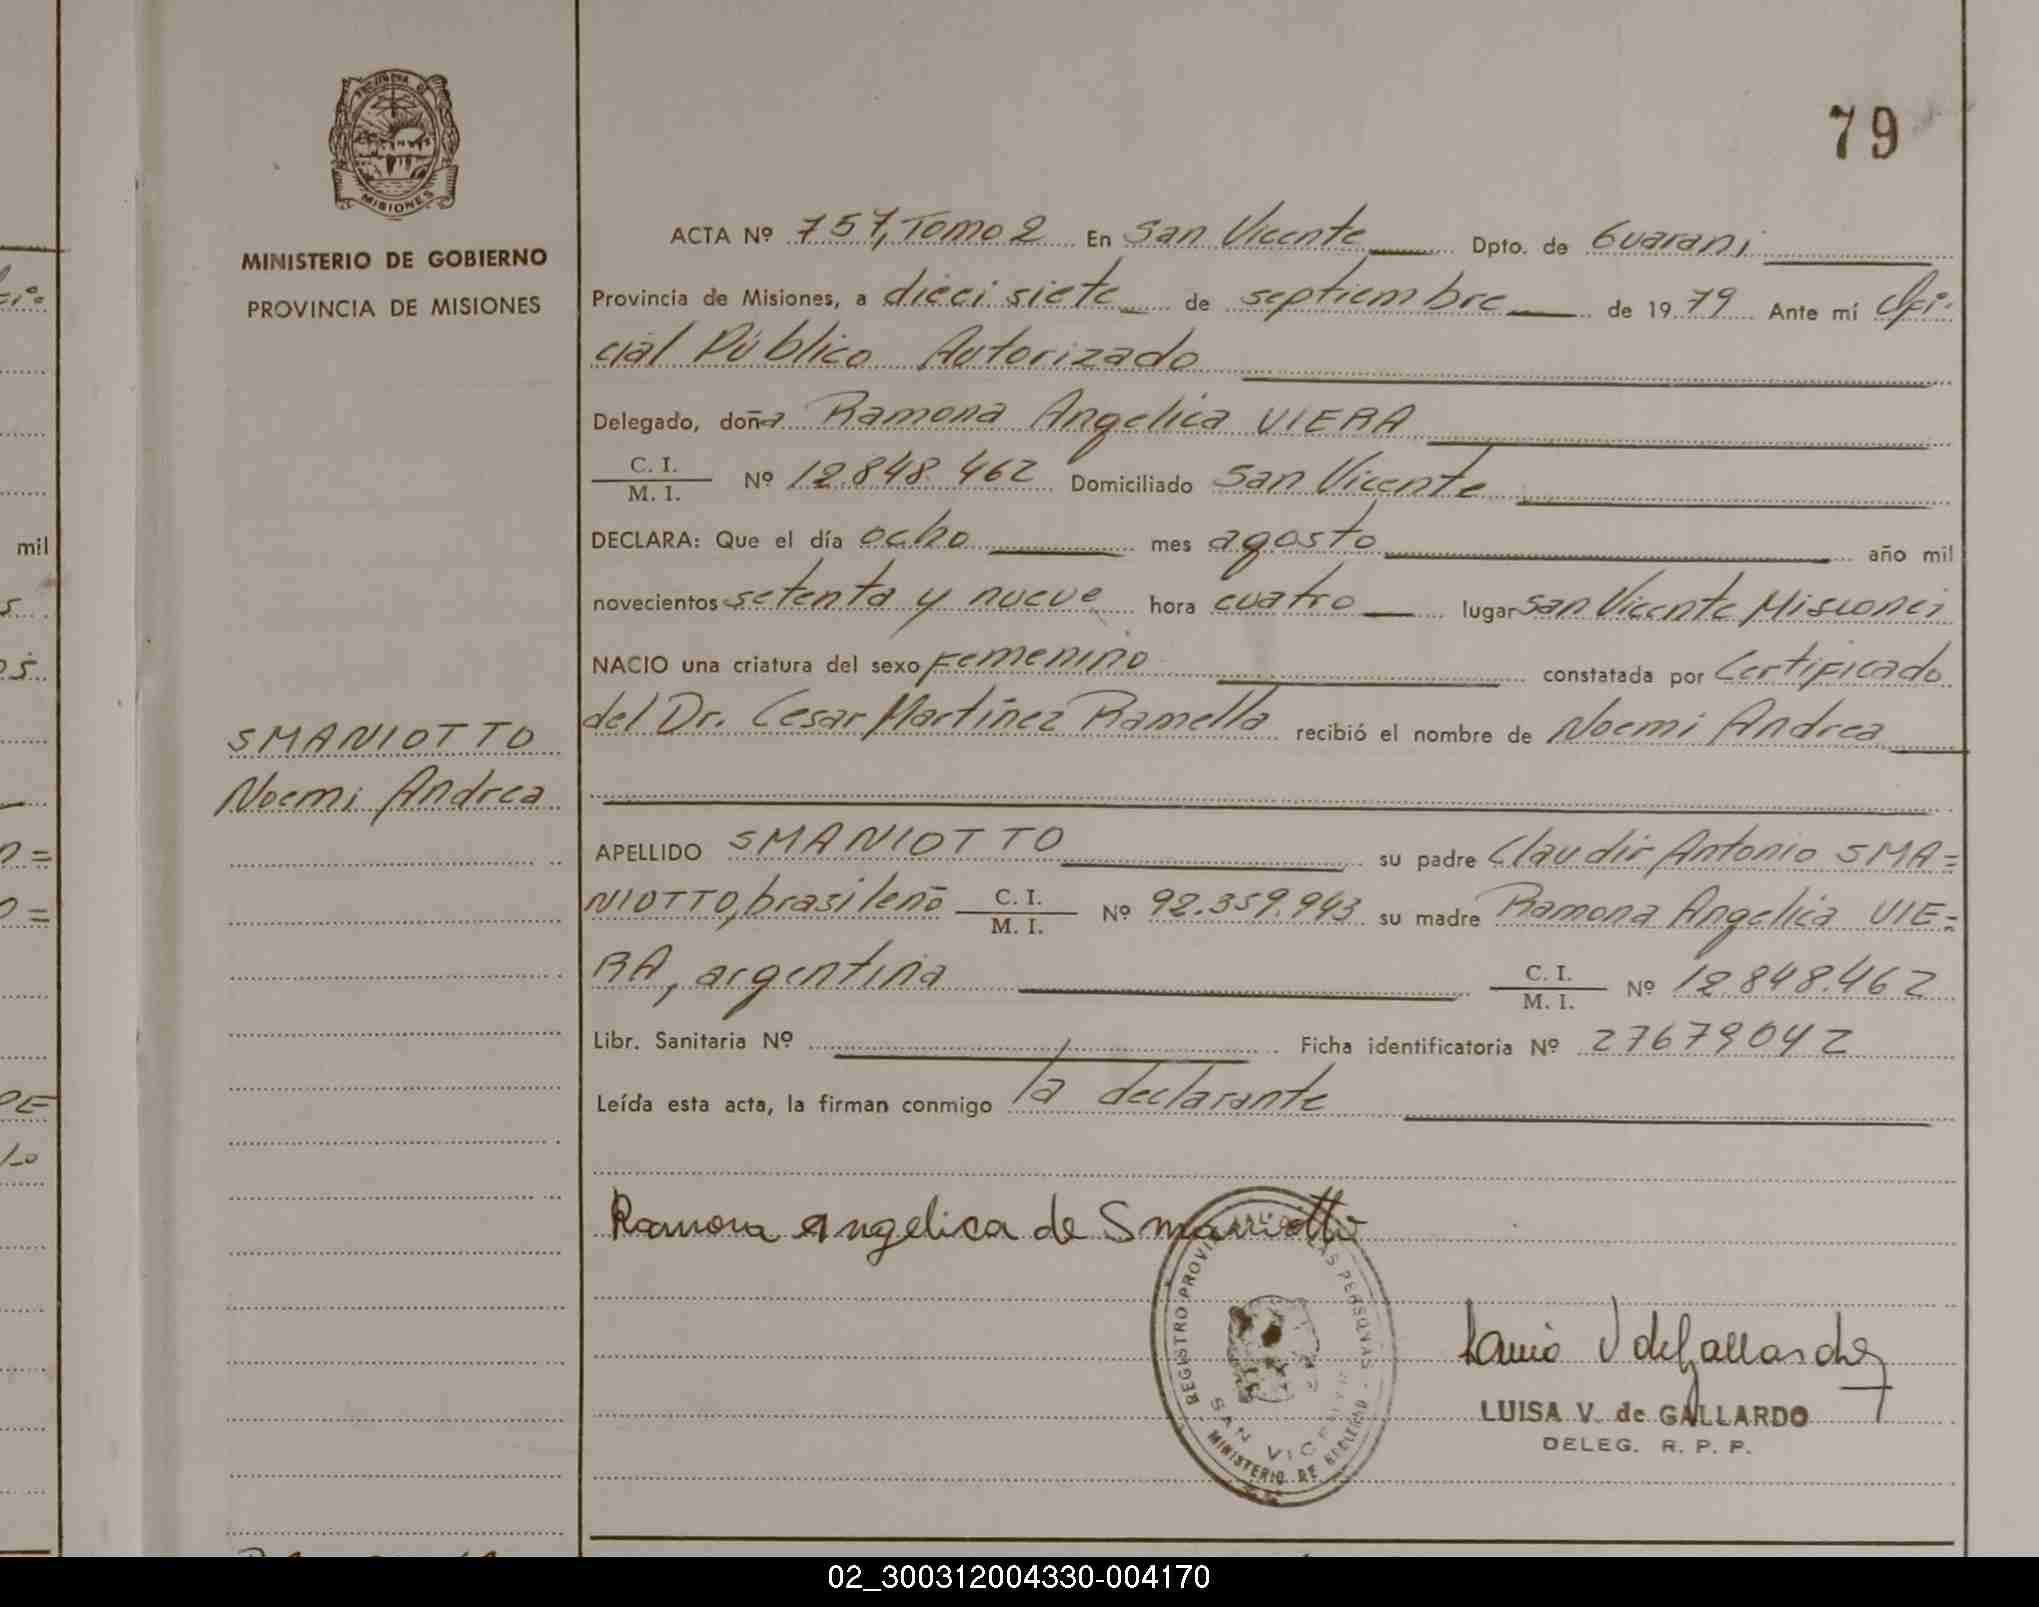 79
MISIONES
MINISTERIO DE GOBIERNO
PROVINCIA DE MISIONES
SMANIOTTO
Noemi Andrea
ACTA Nº 757, Tomo 2 En San Vicente Dpto. de Guarani
Provincia de Misiones, a dieci siete de septiembre de 19 79 Ante mí Ofi-
cial Público Autorizado
Delegado, doña Ramona Angelica VIERA
C. I.
M. I. Nº 12.848.462 Domiciliado San Vicente
DECLARA: Que el día ocho mes agosto año mil
novecientos setenta y nueve hora cuatro lugar San Vicente Misiones
NACIO una criatura del sexo Femenino constatada por Certificado
del Dr. Cesar Martínez Ramella recibió el nombre de Noemi Andrea
APELLIDO SMANIOTTO su padre Claudir Antonio SMA=
NIOTTO, brasileño C. I. M. I. Nº 92.359.943 su madre Ramona Angelica VIE=
RA, argentina C. I. M. I. Nº 12.848.462
Libr. Sanitaria Nº Ficha identificatoria Nº 27679042
Leída esta acta, la firman conmigo la declarante
Ramona Angelica de Smaniotto
REGISTRO PERSONAS
SAN VICENTE
MINISTERIO DE GOBIERNO
LUISA V. de GALLARDO
DELEG. R. P. P.
mil
02_300312004330-004170